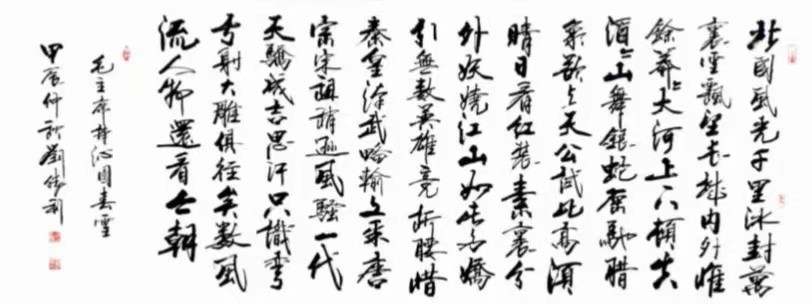 北國風光千里冰封萬
裏雪飄望长城内外惟
餘莽々大河上下頓失
滔々山舞銀蛇原馳腊
象欲与天公試比高須
晴日看红裝素裹分
外妖嬈江山如此多嬌
引無数英雄竞折腰惜
秦皇汉武略輸文采唐
宗宋祖稍逊風騷一代
天驕成吉思汗只識彎
弓射大雕俱往矣数風
流人物還看今朝
毛主席詩沁園春雪
甲辰仲秋劉